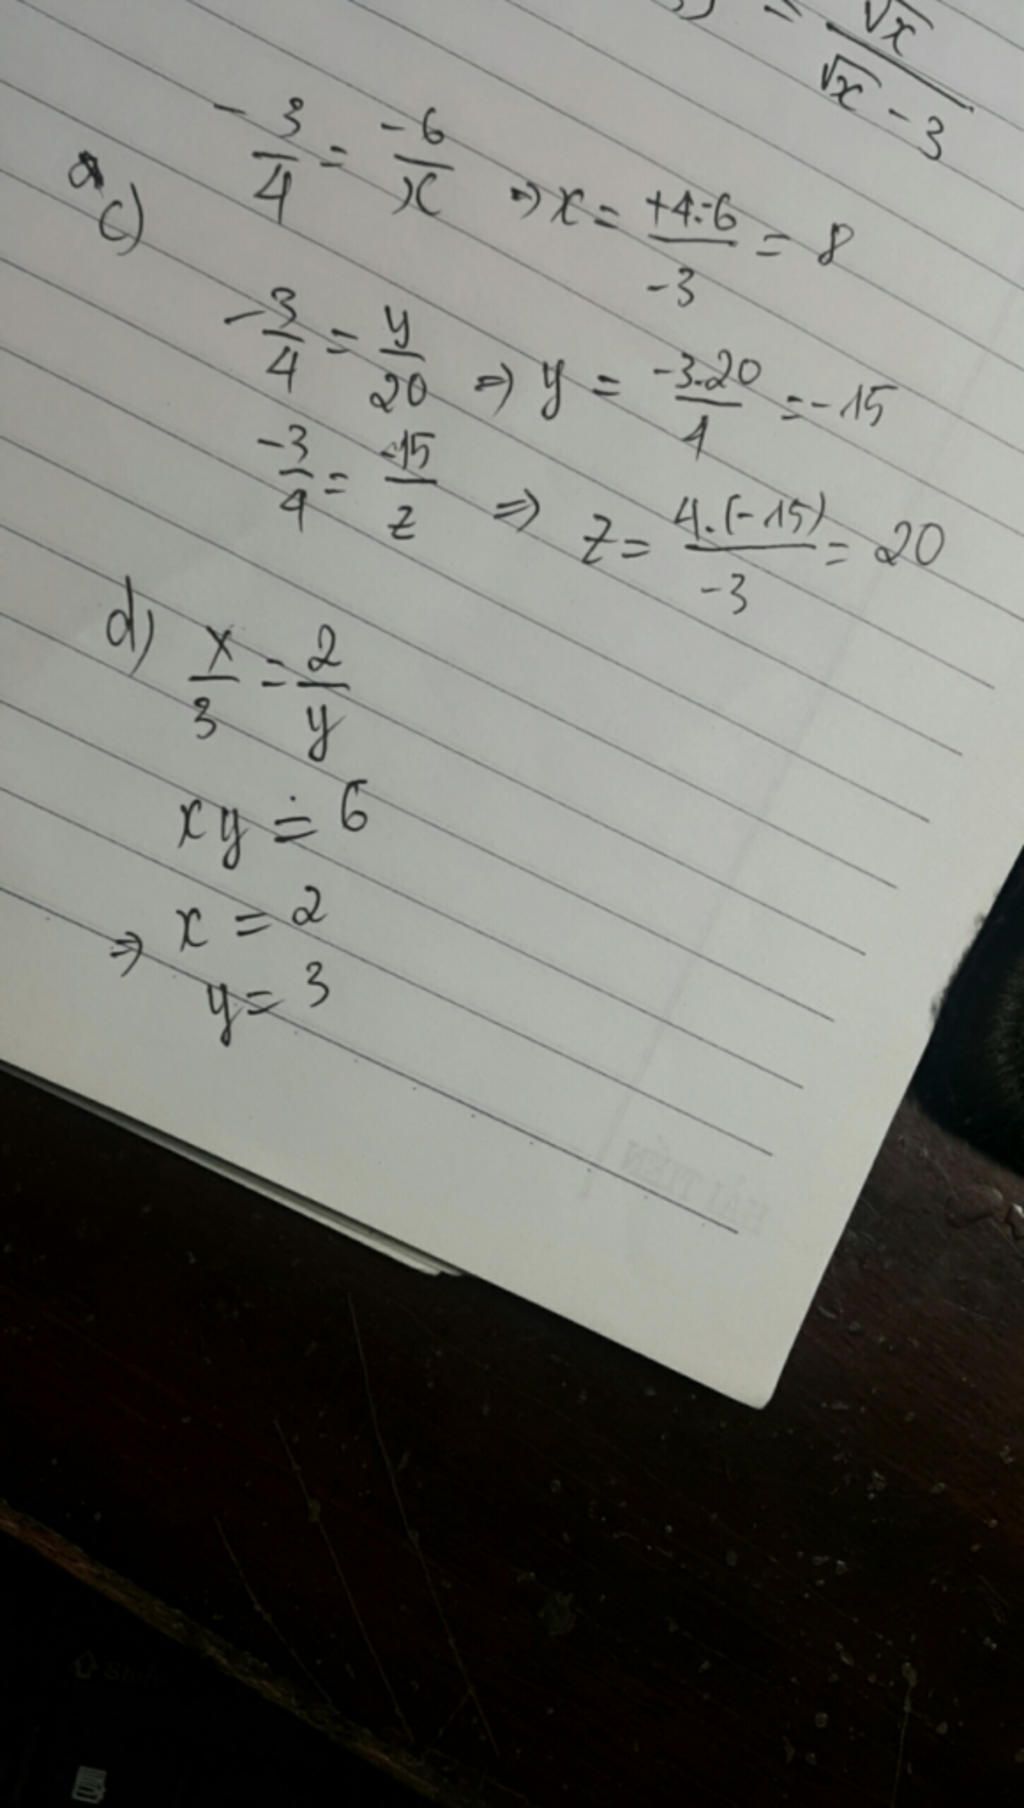 = √x / (√x - 3)
c) -3/4 = -6/x => x = +4.-6/-3 = 8
-3/4 = y/20 => y = -3.20/4 = -15
-3/4 = -15/z => z = 4.(-15)/-3 = 20
d) x/3 = 2/y
xy = 6
=> x = 2
y = 3
HẢI TIẾN
Shift